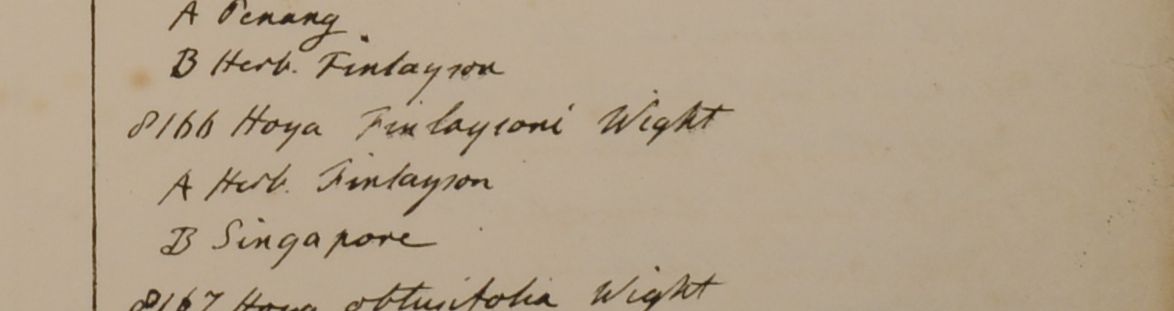 A Penang
B Herb. Finlayson
8166 Hoya Finlaysoni Wight
A Herb. Finlayson
B Singapore
8167 Hoya obtusifolia Wight